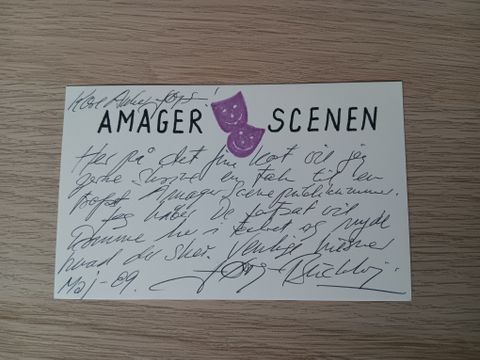 Kære
AMAGER SCENEN
Her på det fine kort vil jeg
gerne en tak til en
Amager Scene publikummer.
Jeg håber De fortsat vil
komme her i huset og nyde
hvad der sker. Venlige hilsner
Maj-09.